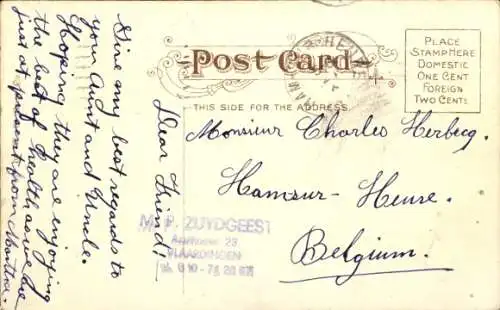 Post Card
THIS SIDE FOR THE ADDRESS.
PLACE
STAMP HERE
DOMESTIC
ONE CENT
FOREIGN
TWO CENTS
Monsieur Charles Herbecq.
Hamsur-Heure.
Belgium.
Dear Friend!
Give my best regards to
your Aunt and Uncle.
Hoping they are enjoying
the best of health as we are
just at present from Martha.
M. P. ZUYDGEEST
23
VLAARDINGEN